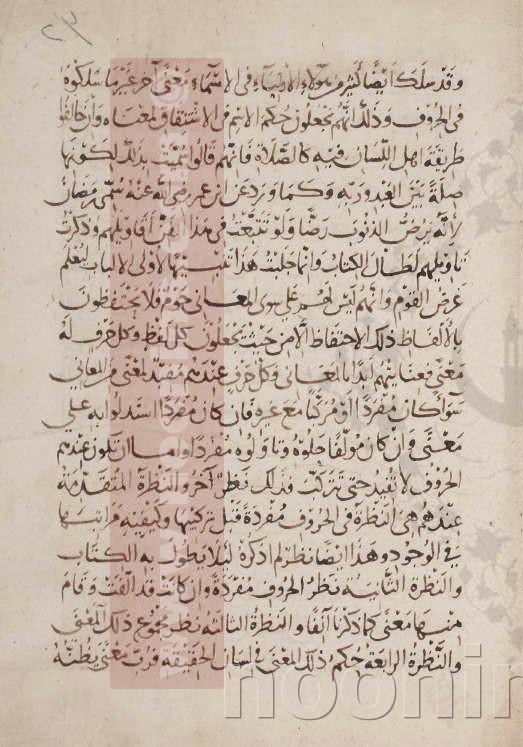 ٢٣
وقد سلك ايضا كثير من هؤلاء الاولياء في الاسماء معنى آخر غير ما سلكوه
في الحروف وذلك انهم يجعلون حكم الاسم في الاشتقاق لمعناه وان خالفوا
طريقة اهل اللسان فيه كالصلاة فانهم قالوا سميت بذلك لكونها
صلة بين العبد وربه وكما ورد عن ابن عمر رضي الله عنه سمي رمضان
لانه يرمض الذنوب رمضا ولو تتبعت في هذا الفن اقاويلهم وذكرت
تاويلهم لطال الكتاب وانما جلبت هذا تنبيها لاولى الالباب ليعلم
غرض القوم وانهم ليس لهم على سوى المعاني حوم فلا يحتفظون
بالالفاظ ذلك الاحتفاظ الا من حيث يجعلون كل لفظ وكل حرف له
معنى فعنايتهم ابدا بالمعاني وكل حرف عندهم مفيد لمعنى من المعاني
سوآ كان مفردا او مركبا مع غيره فان كان مفردا استدلوا به على
معنى وان كان مولفا حلوه وتاولوه مفردا واما ان تكون عندهم
الحروف لا تفيد حتى تتركب فذلك نظر آخر والنظرة المتقدمة
عندهم هي النظرة في الحروف مفردة قبل تركيبها وكيفية مراتبها
في الوجود وهذا ايضا نظر لم اذكره ليلا يطول به الكتاب
والنظرة الثانية نظر الحروف مفردة وان كانت قد الفت وقام
منها معنى كما ذكرنا آنفا والنظرة الثالثة نظر مجموع ذلك المعنى
والنظرة الرابعة حكم ذلك المعنى في لسان الحقيقة فرب معنى يظنه
noonin